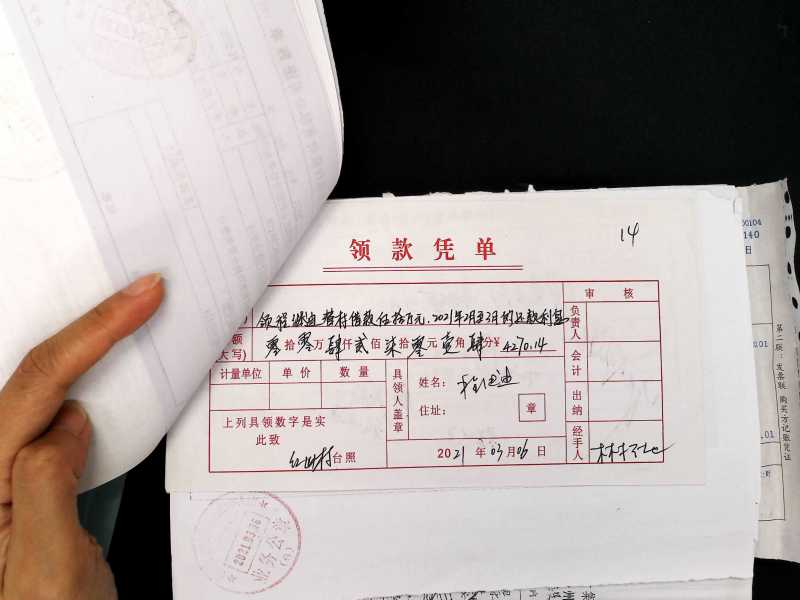 14
领款凭单
审核
领程 迪替村借款伍拾万元,2021年2月至3月的还款利息
负责人
额(大写) 零拾零万肆仟贰佰柒拾零元壹角肆分¥ 4270.14
计量单位 单价 数量
具领人盖章
姓名: 迪
会计
上列具领数字是实
住址:
章
出纳
此致
村台照
2021年03月06日
经手人
2021.03.16
业务公章
00104
140
日
.01
第二联:发票联 购买方记账凭证